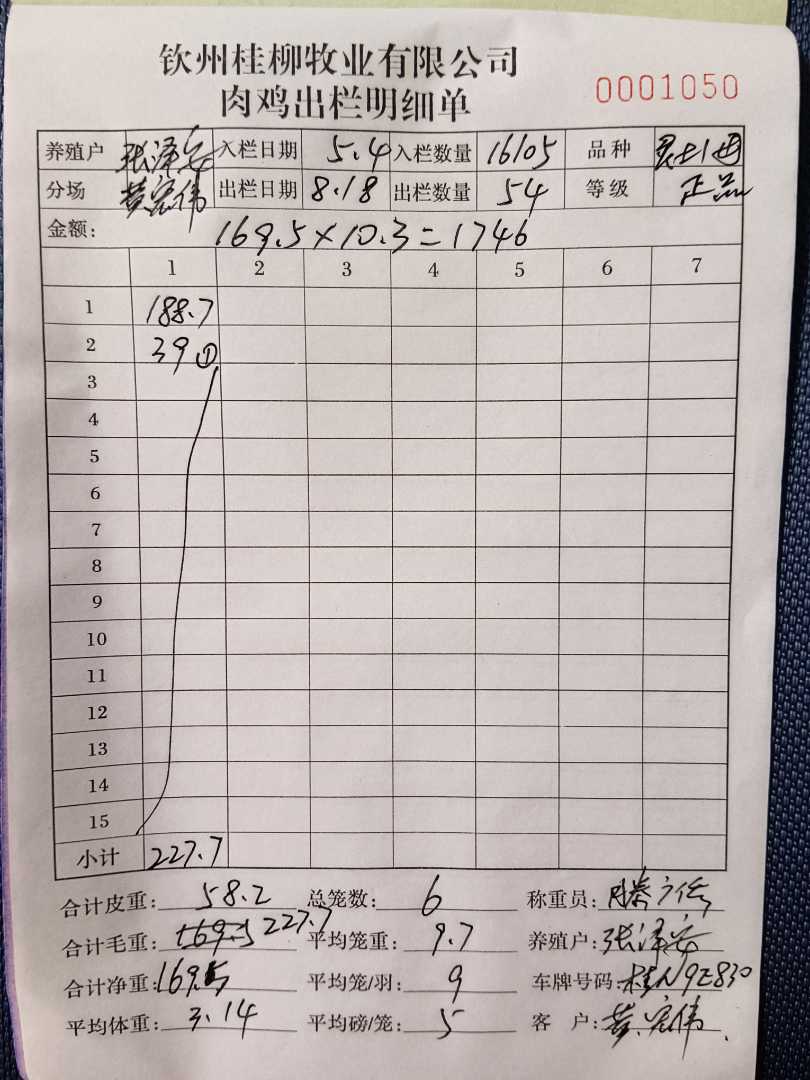 钦州桂柳牧业有限公司
0001050
肉鸡出栏明细单
养殖户 张泽安 入栏日期 5.4 入栏数量 16105 品种
分场 黄宏伟 出栏日期 8.18 出栏数量 54 等级 正品
金额: 169.5×10.3=1746
1 2 3 4 5 6 7
1 188.7
2 39 ①
3
4
5
6
7
8
9
10
11
12
13
14
15
小计 227.7
合计皮重: 58.2 总笼数: 6 称重员:
合计毛重: 169.5 227.7 平均笼重: 9.7 养殖户: 张泽安
合计净重: 169.5 平均笼/羽: 9 车牌号码: 桂N9E830
平均体重: 3.14 平均磅/笼: 5 客户: 黄宏伟